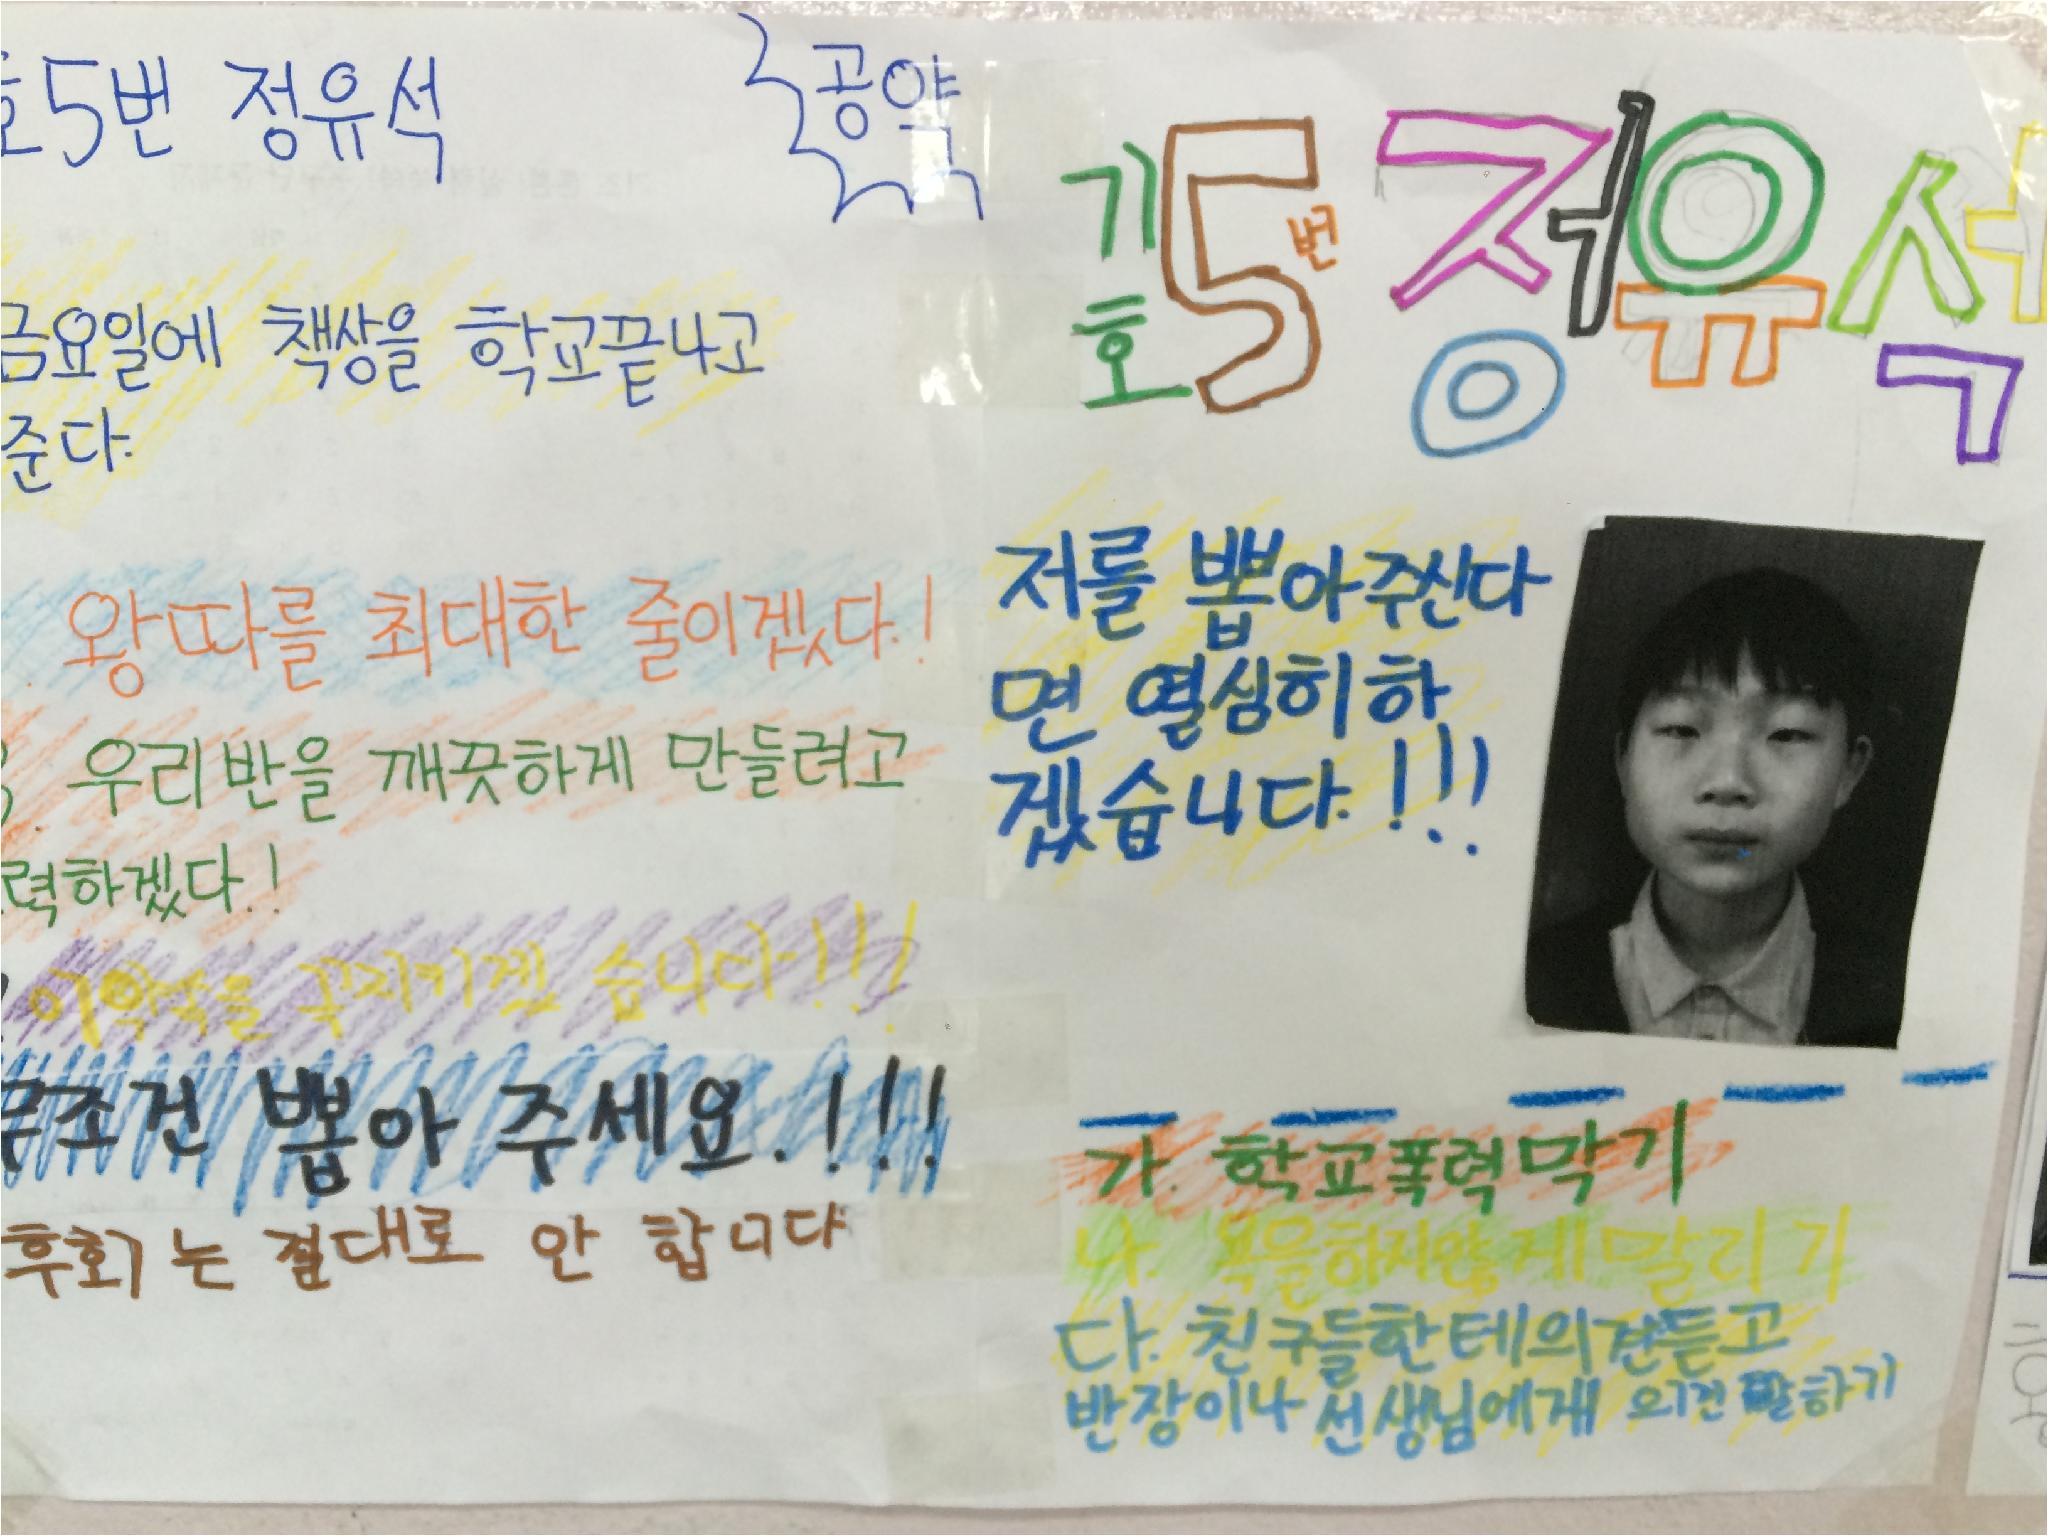 호5번 정유석
공약
금요일에 책상을 학교끝나고
준다.
왕따를 최대한 줄이겠다.!
우리반을 깨끗하게 만들려고
력하겠다.!
이약속을 꼭지키겠습니다.!!!
무조건 뽑아 주세요.!!!
후회는 절대로 안 합니다
기호 5번 정유석
저를 뽑아주신다
면 열심히하
겠습니다.!!!
가. 학교폭력막기
나. 욕을하지않게말리기
다. 친구들한테의견듣고
반장이나 선생님에게 의견 말하기